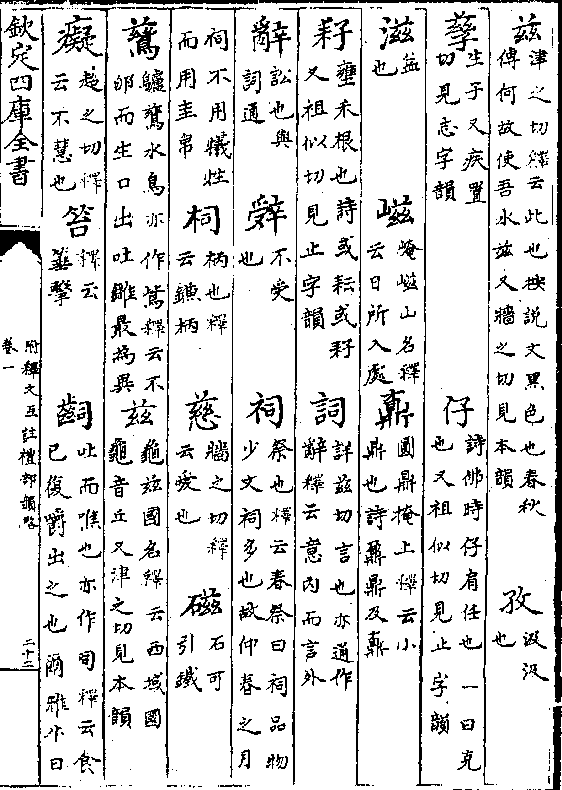 兹津之切釋云此也按説文黑色也春秋傳何故使吾水兹又牆之切見本韻 孜汲汲也
孳生子又疾置切見志字韻 仔詩佛時仔肩任也一曰克也又祖似切見止字韻
滋益也 嵫崦嵫山名釋云日所入處 鼒圜鼎掩上釋云小鼎也詩鼐鼎及鼒
耔壅禾根也詩或耘或耔又祖似切見止字韻 詞詳兹切言也亦通作辭釋云意内而言外
辭訟也與詞通 辤不受也 祠祭也釋云春祭曰祠品物少文祠多也故仲春之月
祠不用犧牲而用圭帛 柌柄也釋云鎌柄 慈牆之切釋云愛也 磁石可引鐵
鶿鸕鶿水鳥亦作鷀釋云不卵而生口出吐雛最為異 兹龜兹國名釋云西域國龜音丘又津之切見本韻
癡超之切釋云不慧也 笞釋云箠擊 齝吐而噍也亦作呞釋云食已復嚼出之也爾雅牛曰
欽定四庫全書
附釋文互註禮部韻略
卷一
二十二